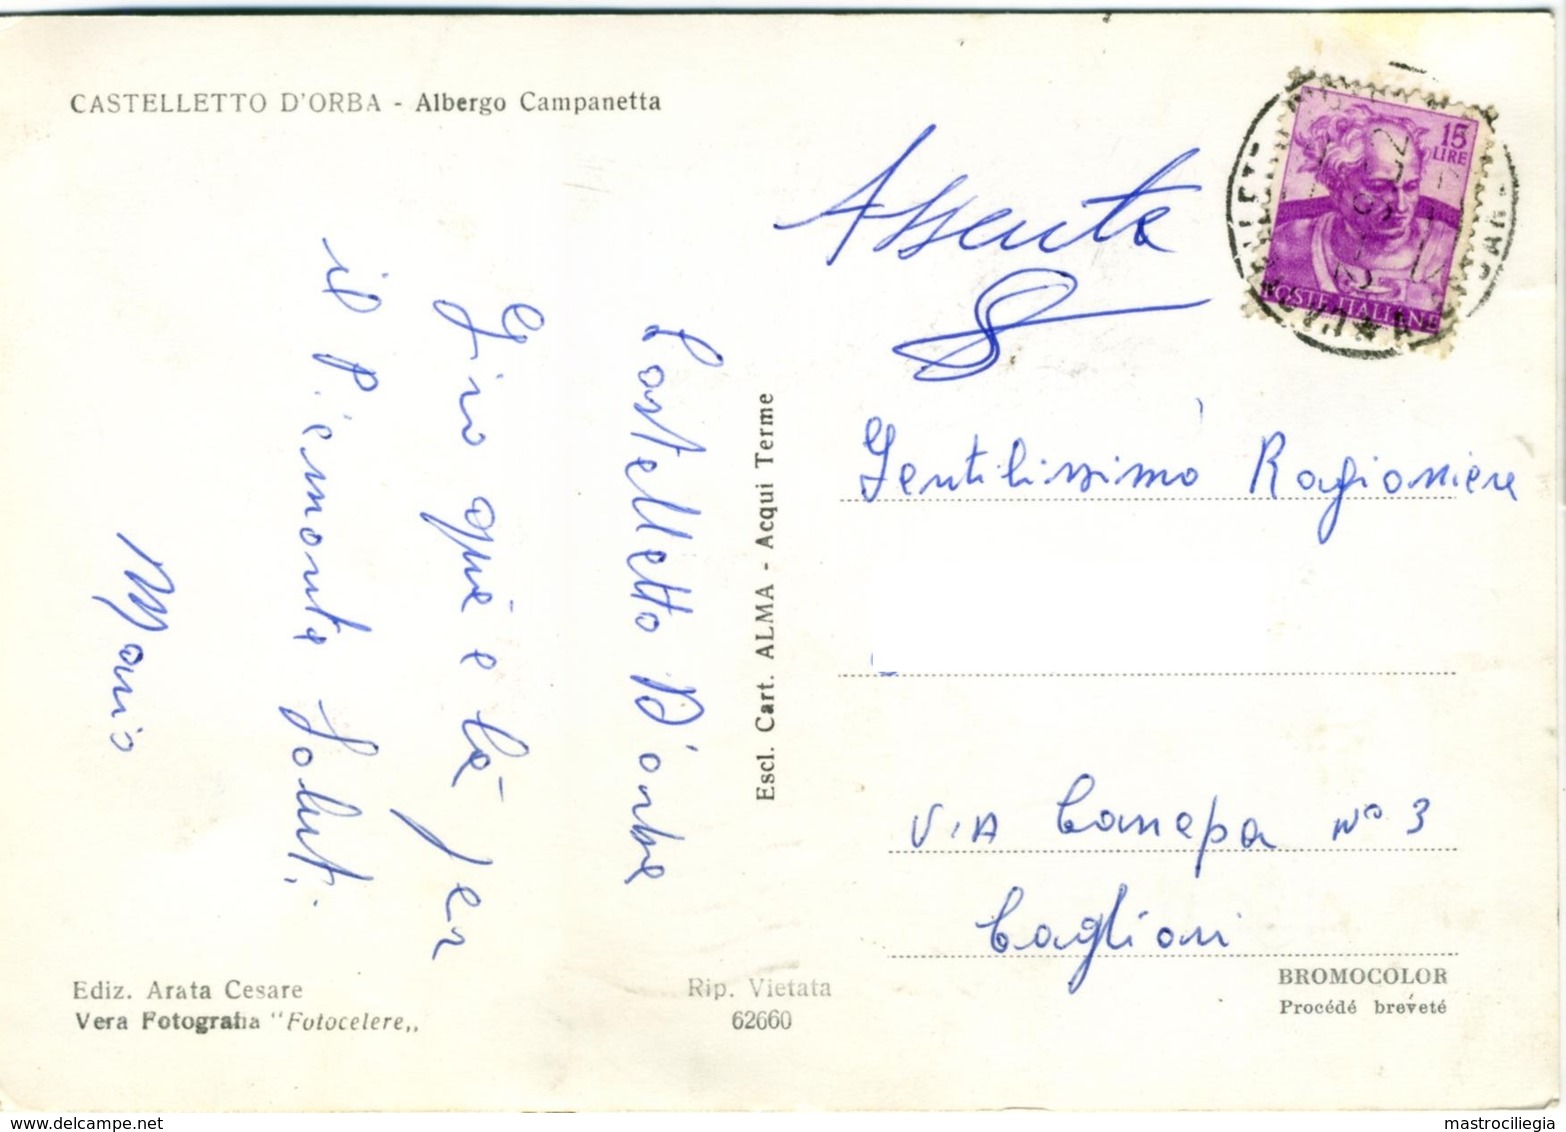 CASTELLETTO D'ORBA - Albergo Campanetta
15
LIRE
POSTE ITALIANE
Assente
Castelletto D'orba
Giro quà e là per
il Piemonte Saluti
Mario
Escl. Cart. ALMA - Acqui Terme
Gentilissimo Ragioniere
VIA Canepa N° 3
Cagliari
Ediz. Arata Cesare
Vera Fotografia "Fotocelere„
Rip. Vietata
62660
BROMOCOLOR
Procédé breveté
delcampe.net
mastrociliegia